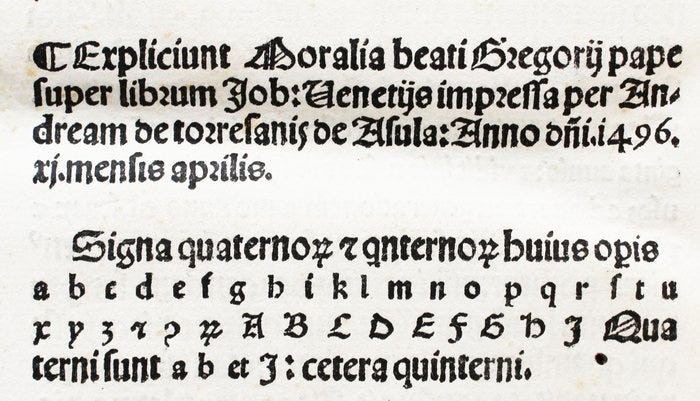 ⁋Expliciunt Moralia beati Gregorij pape
super librum Job: Uenetijs impressa per An⸗
dream de torresanis de Asula: Anno dñi.i496.
xj.mensis aprilis.
Signa quaternoꝝ ⁊ qnternoꝝ huius oꝑis
a b c d e f g h i k l m n o p q r ſ t u
x y z ⁊ ꝯ ꝝ A B C D E F G H J Qua
terni sunt a b et J: cetera quinterni.